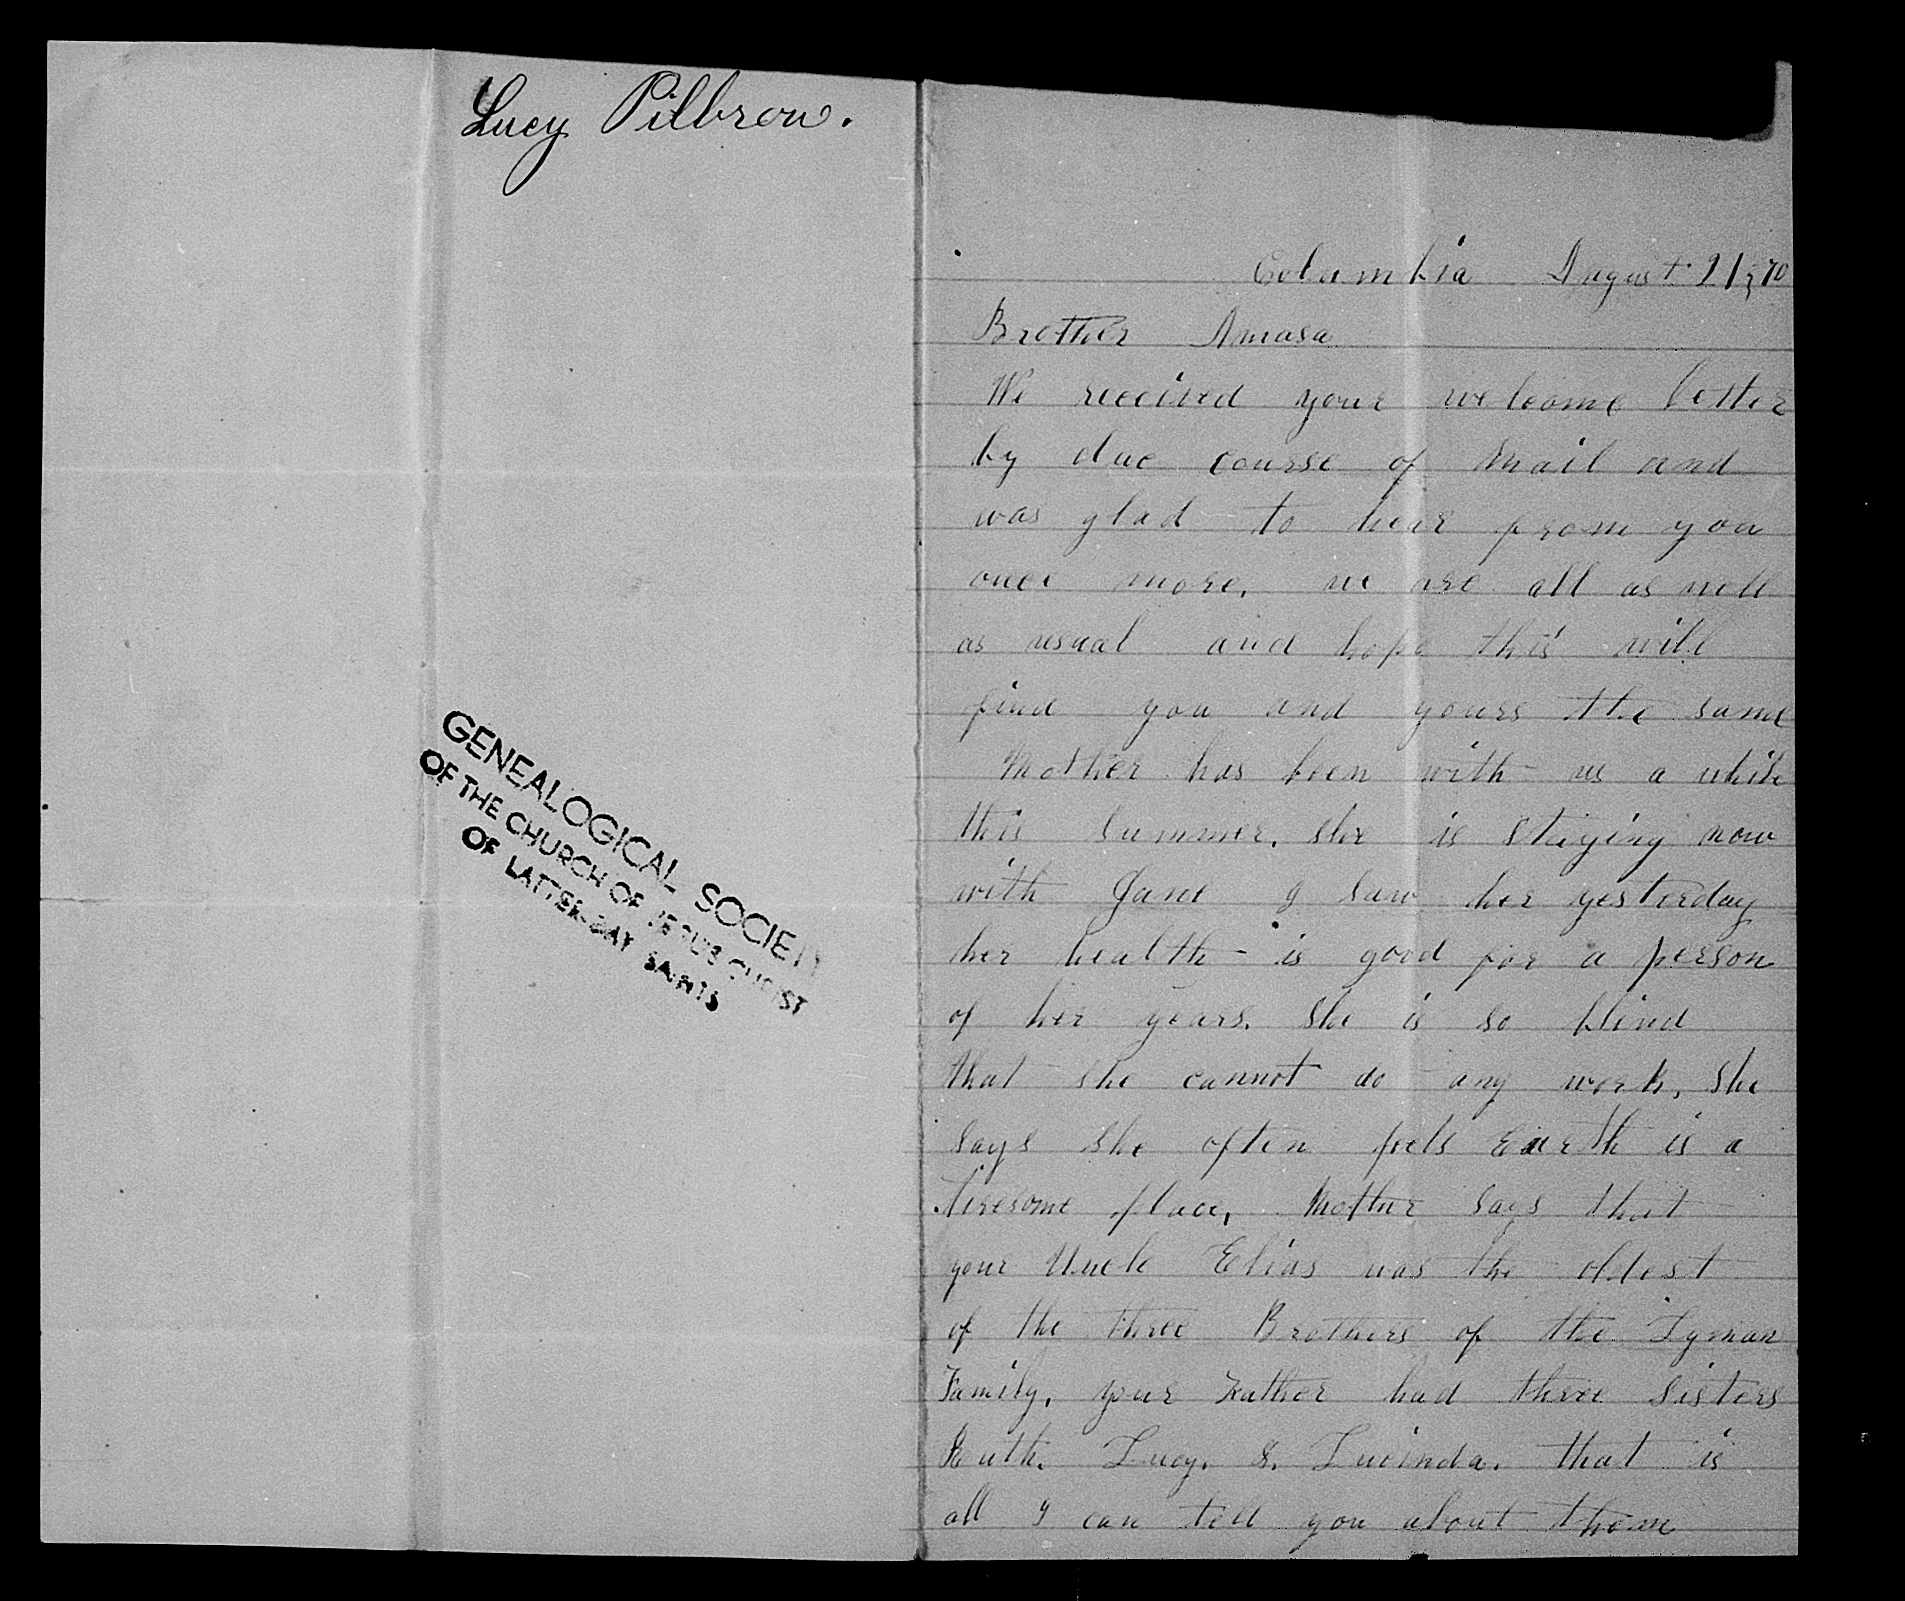 Lucy Pilbrow.
GENEALOGICAL SOCIETY
OF THE CHURCH OF JESUS CHRIST
OF LATTER-DAY SAINTS
Columbia August 21, 70
Brother Amasa
We received your welcome letter
by due course of mail and
was glad to hear from you
once more, we are all as well
as usual and hope this will
find you and yours the same
Mother has been with us a while
this Summer, she is staying now
with Jane I saw her yesterday
her health is good for a person
of her years. She is so blind
that she cannot do any work, She
says she often feels Earth is a
tiresome place, Mother says that
your Uncle Elias was the oldest
of the three Brothers of the Lyman
Family, your Father had three sisters
Ruth. Lucy. &. Lucinda. that is
all I can tell you about them